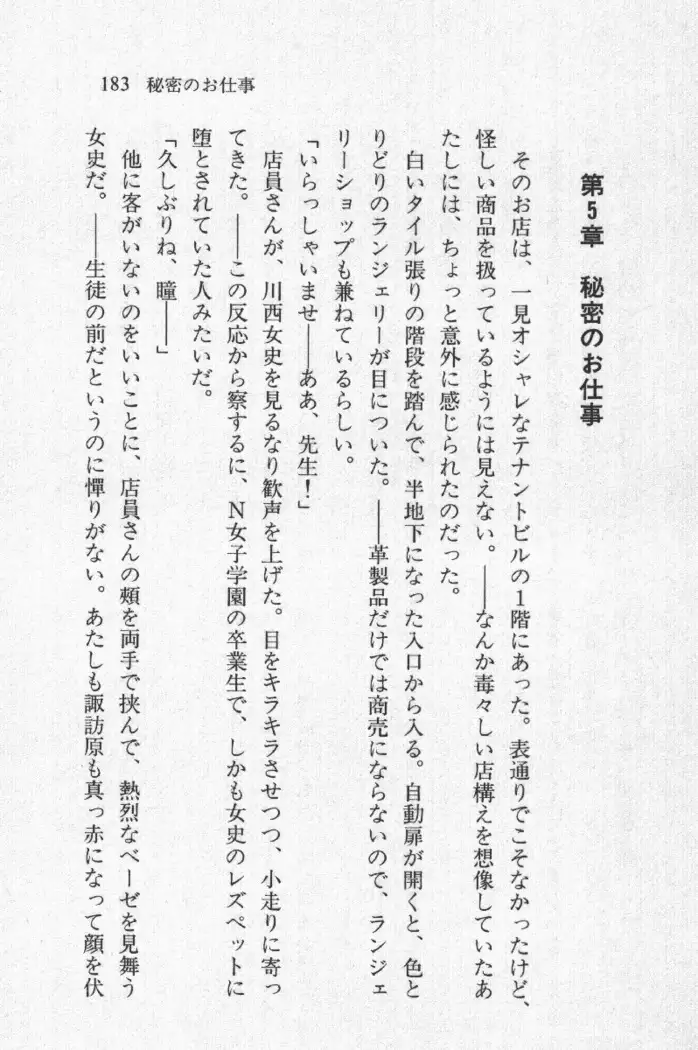 183 秘密のお仕事
第5章 秘密のお仕事
そのお店は、一見オシャレなテナントビルの1階にあった。表通りでこそなかったけど、
怪しい商品を扱っているようには見えない。――なんか毒々しい店構えを想像していたあ
たしには、ちょっと意外に感じられたのだった。
白いタイル張りの階段を踏んで、半地下になった入口から入る。自動扉が開くと、色と
りどりのランジェリーが目についた。――革製品だけでは商売にならないので、ランジェ
リーショップも兼ねているらしい。
「いらっしゃいませ――ああ、先生！」
店員さんが、川西女史を見るなり歓声を上げた。目をキラキラさせつつ、小走りに寄っ
てきた。――この反応から察するに、N女子学園の卒業生で、しかも女史のレズペットに
堕とされていた人みたいだ。
「久しぶりね、瞳――」
他に客がいないのをいいことに、店員さんの頰を両手で挟んで、熱烈なベーゼを見舞う
女史だ。――生徒の前だというのに憚りがない。あたしも諏訪原も真っ赤になって顔を伏